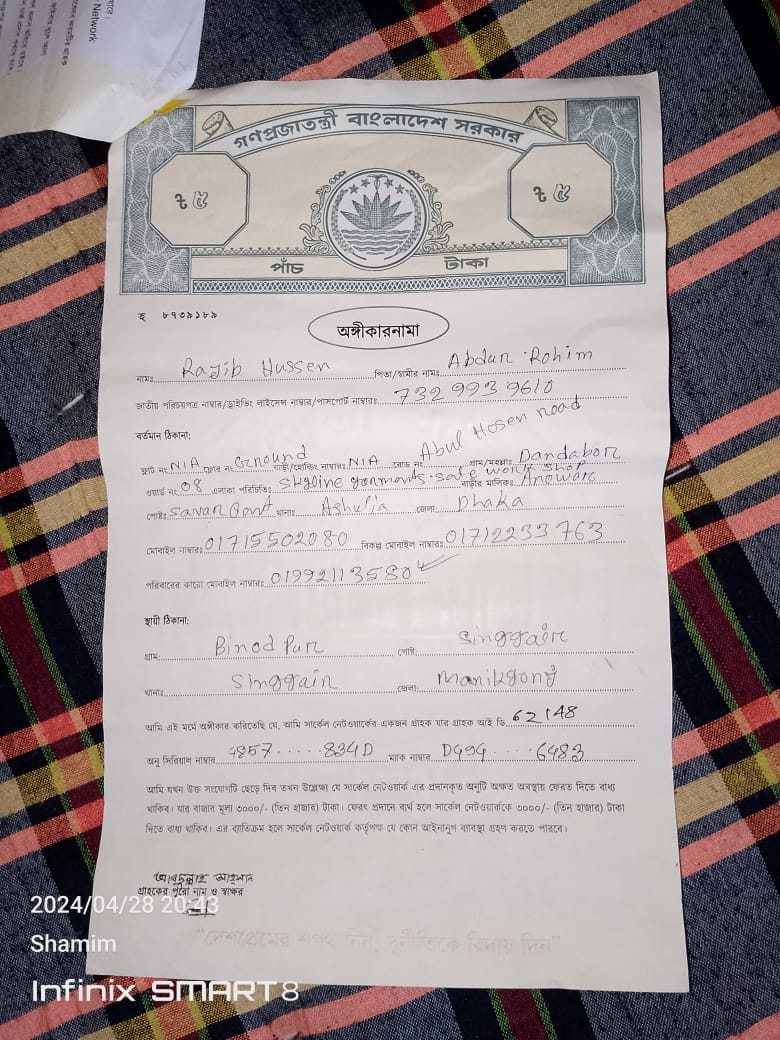 Network
গণপ্রজাতন্ত্রী বাংলাদেশ সরকার
৳ ৫ ৳ ৫
পাঁচ টাকা
হ ৮৭৩৯১৮৯
অঙ্গীকারনামা
নামঃ Rajib Hussen পিতা/স্বামীর নামঃ Abdur Rohim
জাতীয় পরিচয়পত্র নাম্বার/ড্রাইভিং লাইসেন্স নাম্বার/পাসপোর্ট নাম্বারঃ 732 993 9610
বর্তমান ঠিকানা:
ফ্লাট নং N/A ফ্লোর নং Ground বাড়ী/হোল্ডিং নাম্বারঃ N/A রোড নং Abul Hosen road গ্রাম/মহল্লাঃ Dandabor
ওয়ার্ড নং 08 এলাকা পরিচিতিঃ Skyline garments. sate work shop বাড়ীর মালিকঃ Anowar
পোষ্টঃ Savar Cant থানাঃ Ashulia জেলা Dhaka
মোবাইল নাম্বারঃ 01715502080 বিকল্প মোবাইল নাম্বারঃ 01712233763
পরিবারের কারো মোবাইল নাম্বারঃ 01992113580
স্থায়ী ঠিকানা:
গ্রাম: Binod Pur পোষ্ট: Singgair
থানাঃ Singgair জেলা: Manikgonj
আমি এই মর্মে অঙ্গীকার করিতেছি যে, আমি সার্কেল নেটওয়ার্কের একজন গ্রাহক যার গ্রাহক আই ডি 62148
অনু সিরিয়াল নাম্বার 4857.....834D ম্যাক নাম্বার D494....6483
আমি যখন উক্ত সংযোগটি ছেড়ে দিব তখন উল্লেক্ষ্য যে সার্কেল নেটওয়ার্ক এর প্রদানকৃত অনুটি অক্ষত অবস্থায় ফেরত দিতে বাধ্য
থাকিব। যার বাজার মূল্য ৩০০০/- (তিন হাজার) টাকা। ফেরৎ প্রদানে ব্যর্থ হলে সার্কেল নেটওয়ার্ককে ৩০০০/- (তিন হাজার) টাকা
দিতে বাধ্য থাকিব। এর ব্যতিক্রম হলে সার্কেল নেটওয়ার্ক কর্তৃপক্ষ যে কোন আইনানুগ ব্যবস্থা গ্রহণ করতে পারবে।
গ্রাহকের পুরো নাম ও স্বাক্ষর
"দেশপ্রেমের শপথ নিন, দুর্নীতিকে বিদায় দিন"
2024/04/28 20:43
Shamim
Infinix SMART 8